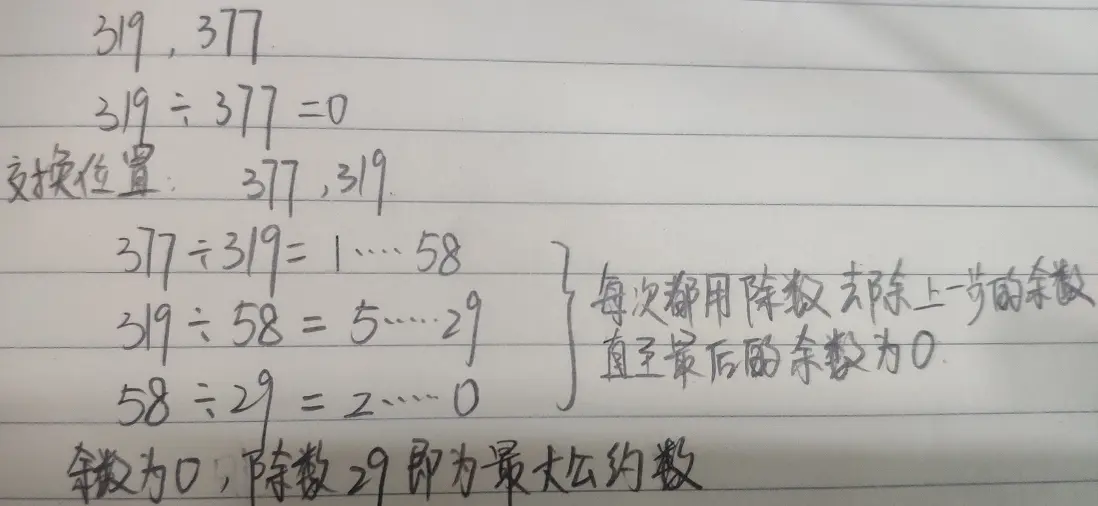 319，377
319÷377=0
交换位置： 377，319.
377÷319=1·····58
319÷58=5·····29
58÷29=2·····0
每次都用除数去除上一步的余数
直至最后的余数为0.
余数为0，除数29即为最大公约数